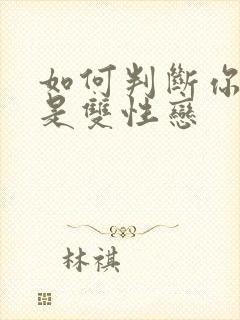 如何判斷你
是雙性戀
林祺